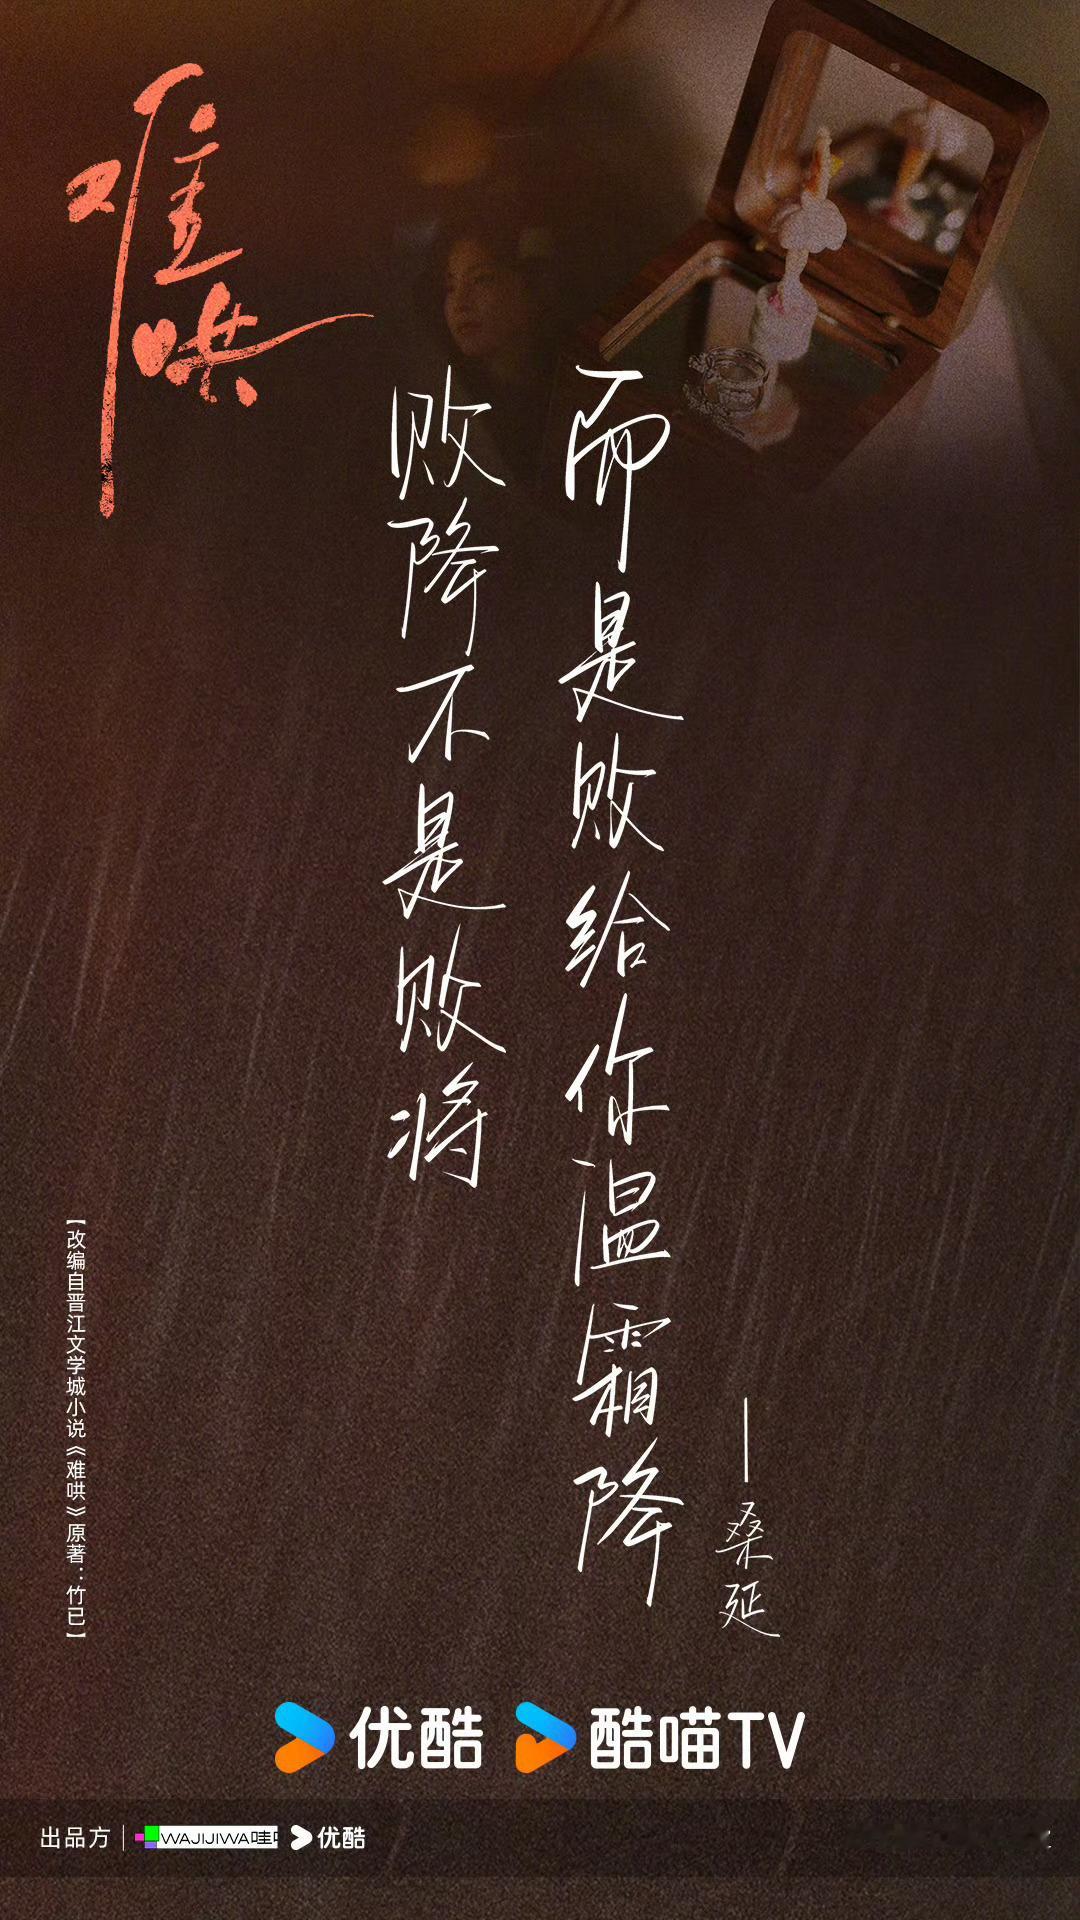 难哄
败降不是败将
而是败给你温霜降
——桑延
【改编自晋江文学城小说《难哄》原著：竹已】
优酷 酷喵TV
出品方 WAJIJIWA哇 优酷